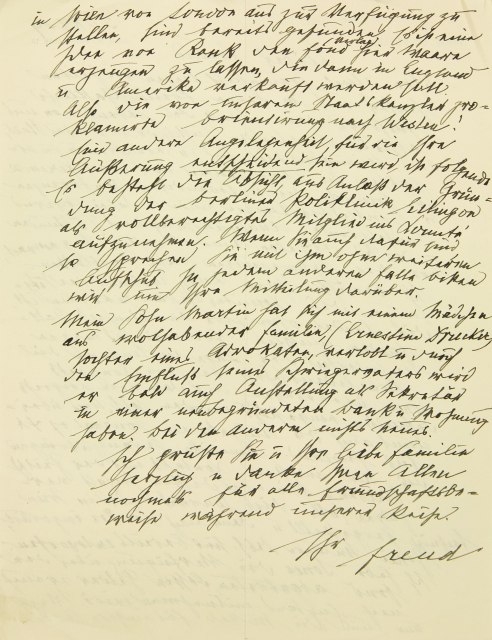 in Wien von London aus zur Verfügung zu
stellen, sind bereits gefunden. Es ist eine
Idee von Rank den fond hier Waare
erzeugen zu lassen, die dann in England
u Amerika verkauft werden soll
Also die von unserem Staatskanzler pro-
klamirte Orientirung nach Westen!
Eine andere Angelegenheit, für die Ihre
Äußerung entscheidend sein wird ist folgende
Es besteht die Absicht, aus Anlaß der Grün-
dung der berliner Poliklinik Eitingon
als vollberechtigtes Mitglied ins Komité
aufzunehmen. Wenn Sie auch dafür sind
so sprechen Sie mit ihm ohne weiteren
Aufschub. In jedem anderen Falle bitten
wir um Ihre Mitteilung darüber.
Mein Sohn Martin hat sich mit einem Mädchen
aus wolhabender Familie (Ernestine Drucker)
Tochter eines Advokaten, verlobt u durch
den Einfluß seines Schwiegervaters wird
er bald auch Anstellung als Sekretär
in einer neubegründeten Bank u Wohnung
haben. Bei den anderen nichts neues.
Ich grüße Sie u Ihre liebe Familie
herzlich u danke Ihnen Allen
nochmals für alle Freundschaftsbe-
weise während unserer Reise.
Ihr Freud